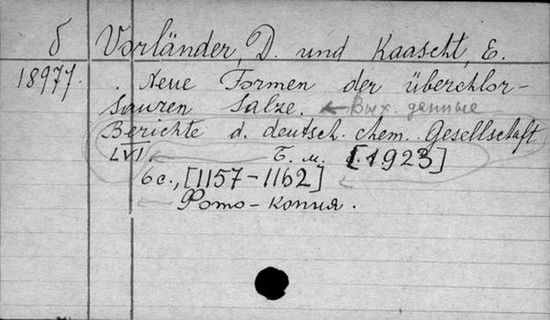 б Vorländer, D. und Kaascht, E.
18977. Neue Formen der überchlor-
sauren Salze. ← Вых. данные
Berichte d. deutsch. chem. Gesellschaft
LVI. Б. м. [.1923]
6 с., [1157-1162]
Фото-копия.